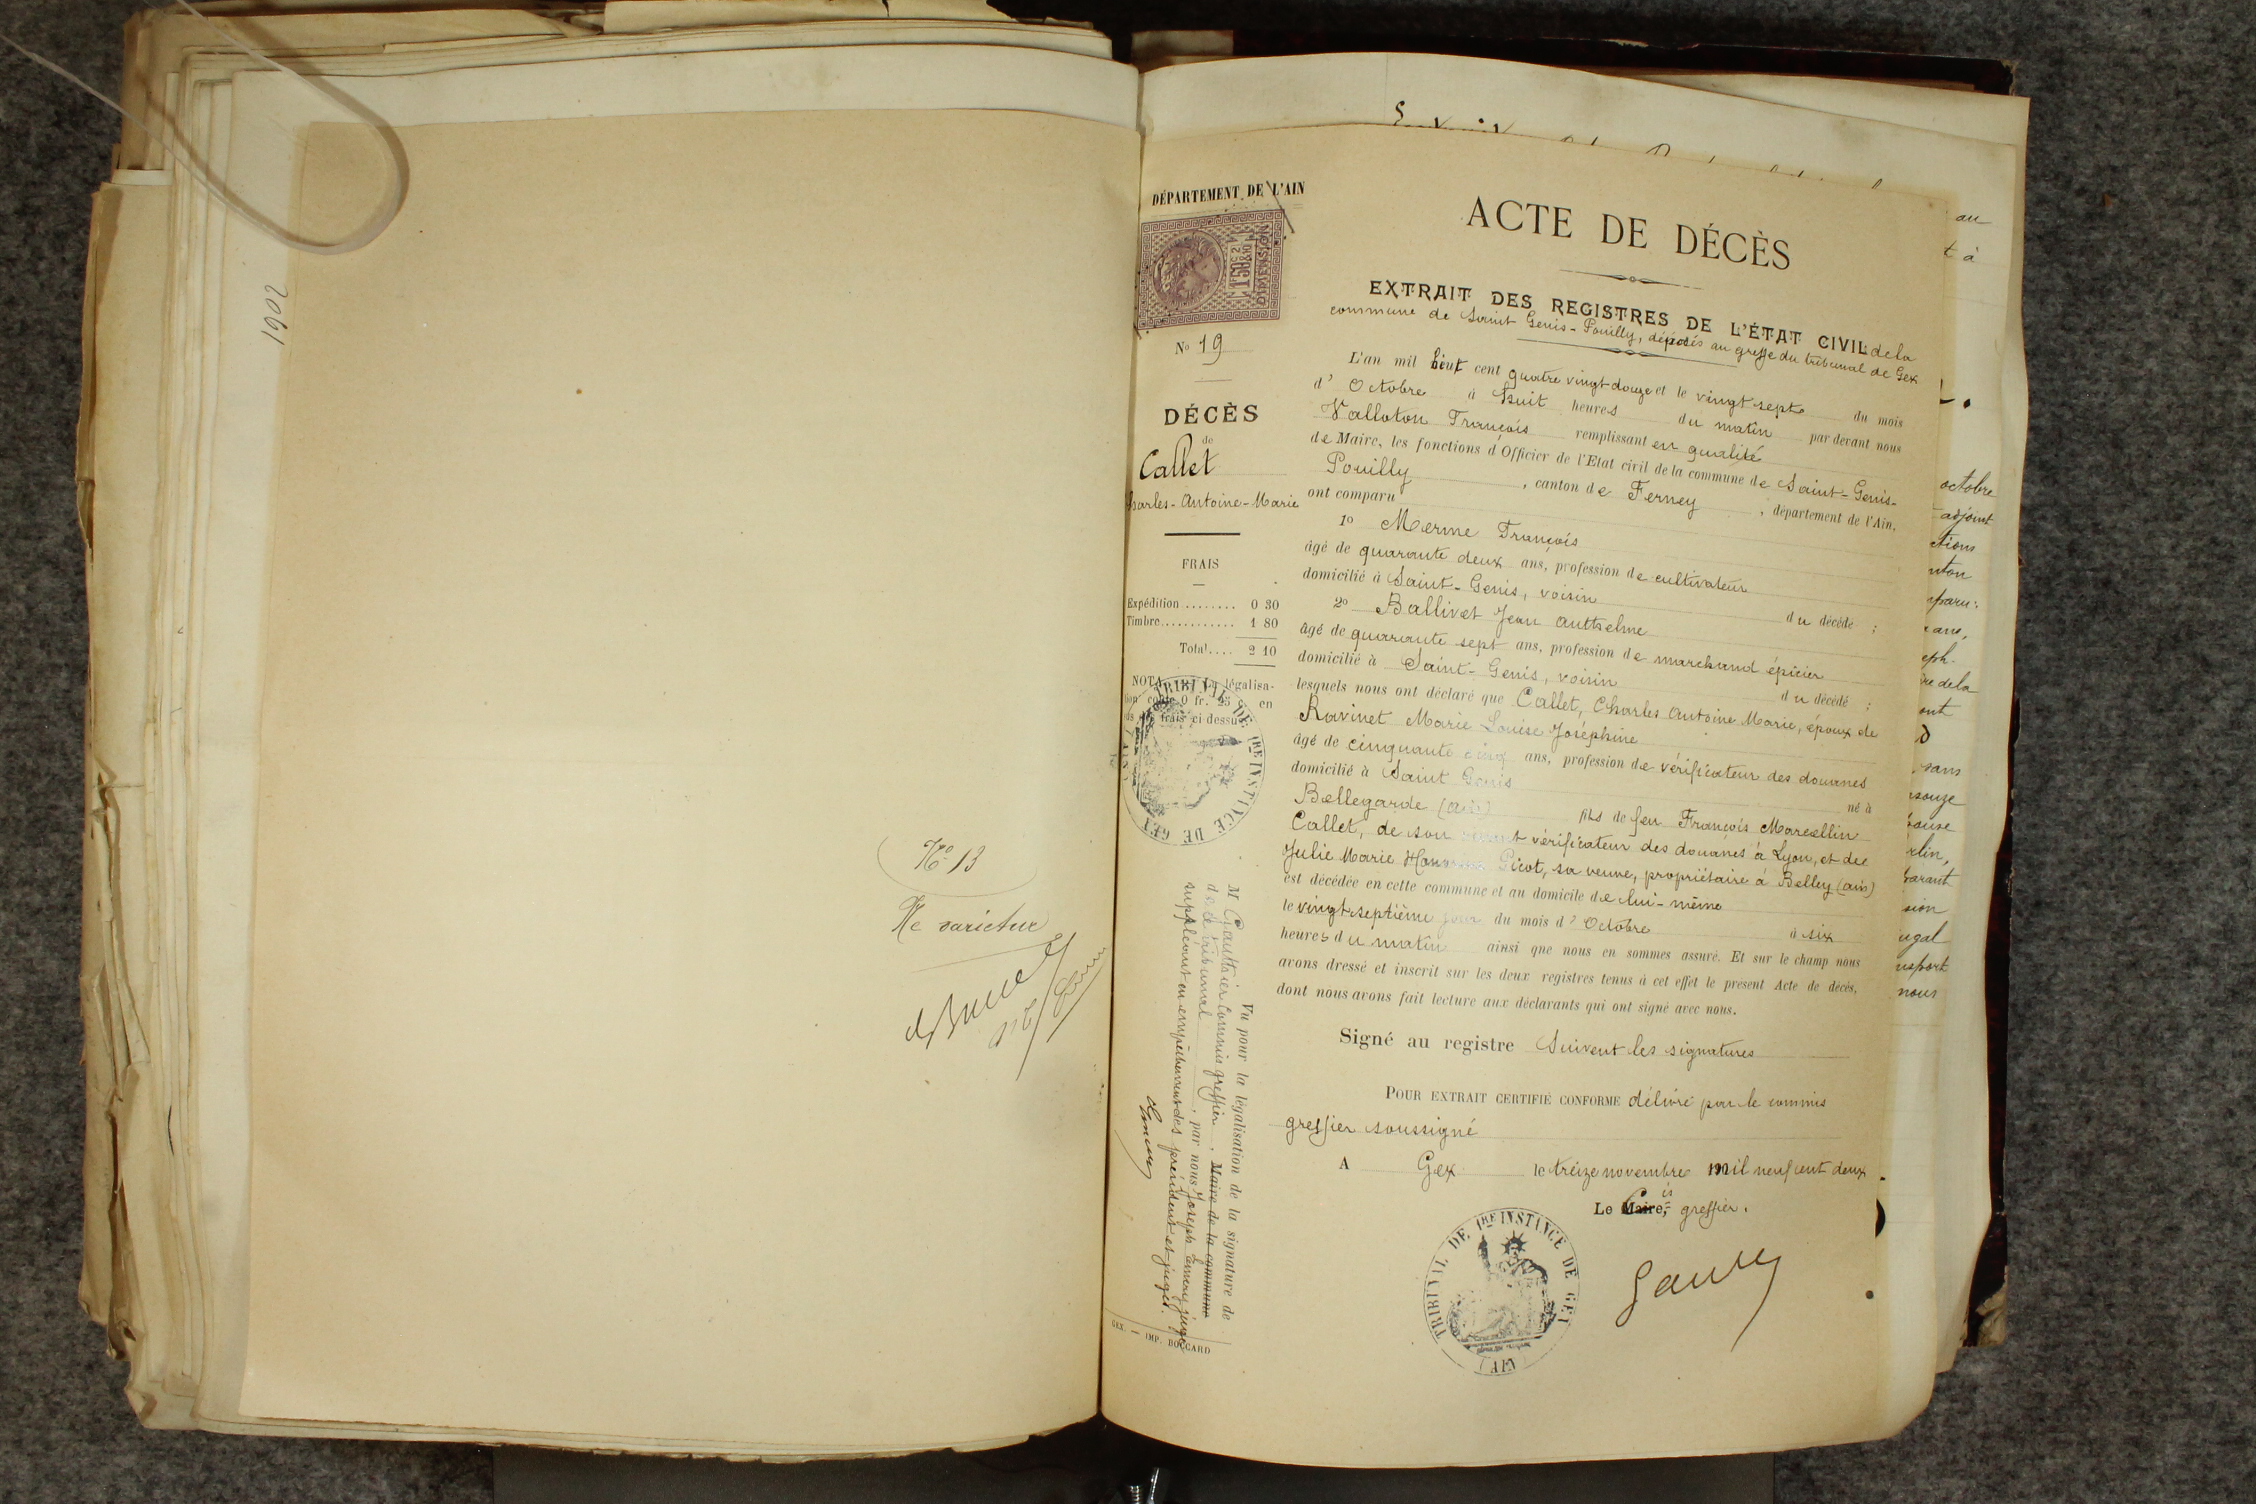 1902
No 13
Ne varietur
DÉPARTEMENT DE L'AIN
1F50c
2/10
DIMENSION
No 19
DÉCÈS
de
Callet
Charles-Antoine-Marie
FRAIS
Expédition ........ 0 30
Timbre............ 1 80
Total.... 2 10
NOTA légalisa-
coûte 0 fr. 25 en
frais ci dessus
TRIBUNAL DE 1RE INSTANCE DE GEX
Vu pour la légalisation de la signature de
M Gauthier Commis greffier, Maire de la commune
de ce tribunal, par nous Joseph Emery juge
suppléant en empêchement des président et juges.
Emery
GEX. — IMP. BOCCARD
ACTE DE DÉCÈS
EXTRAIT DES REGISTRES DE L'ÉTAT CIVIL de la
commune de Saint Genis-Pouilly, déposés au greffe du tribunal de Gex
L'an mil huit cent quatre vingt douze et le vingt sept du mois
d'Octobre à huit heures du matin par devant nous
Valloton François remplissant en qualité
de Maire, les fonctions d'Officier de l'Etat civil de la commune de Saint-Genis-
Pouilly, canton de Ferney, département de l'Ain,
ont comparu
1o Merme François
âgé de quarante deux ans, profession de cultivateur
domicilié à Saint-Genis, voisin du décédé ;
2o Ballivet Jean Anthelme
âgé de quarante sept ans, profession de marchand épicier
domicilié à Saint-Genis, voisin du décédé ;
lesquels nous ont déclaré que Callet, Charles Antoine Marie, époux de
Ravinet Marie Louise Joséphine
âgé de cinquante cinq ans, profession de vérificateur des douanes
domicilié à Saint Genis né à
Bellegarde (ain) fils de feu François Marcellin
Callet, de son vivant vérificateur des douanes à Lyon, et de
Julie Marie Picot, sa veuve, propriétaire à Belley (ain)
est décédée en cette commune et au domicile de lui-même
le vingt septième jour du mois d'Octobre à six
heures du matin ainsi que nous en sommes assuré. Et sur le champ nous
avons dressé et inscrit sur les deux registres tenus à cet effet le présent Acte de décès,
dont nous avons fait lecture aux déclarants qui ont signé avec nous.
Signé au registre Suivent les signatures
POUR EXTRAIT CERTIFIÉ CONFORME délivré par le commis
greffier soussigné
A Gex le treize novembre mil neuf cent deux
Le Maire, Cis greffier.
TRIBUNAL DE 1RE INSTANCE DE GEX
(AIN)
au
t à
octobre
adjoint
ctions
nton
mparu :
ans,
eph.
re de la
ont
sans
ouze
pouse
rlin,
sion
ugal
nsport
nous